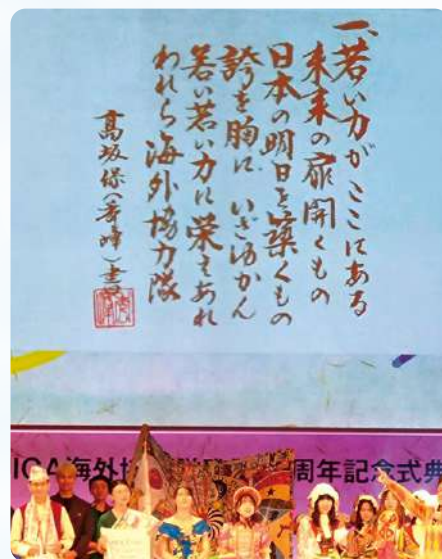 一、若い力がここにある
未来の扉開くもの
日本の明日を築くもの
誇を胸に いざゆかん
若い若い力に栄えあれ
われら海外協力隊
高坂保 書
ICA海外 周年記念式典